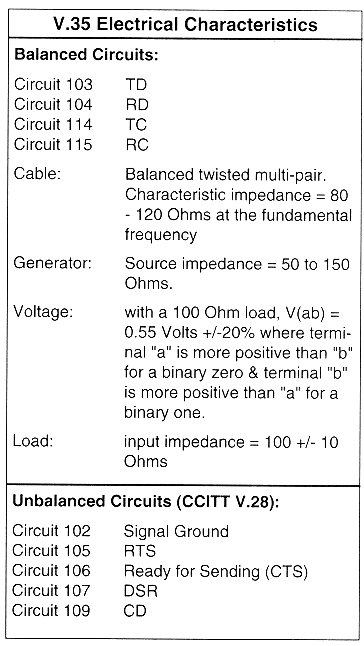 V.35 Electrical Characteristics
Balanced Circuits:
Circuit 103 TD
Circuit 104 RD
Circuit 114 TC
Circuit 115 RC
Cable: Balanced twisted multi-pair.
Characteristic impedance = 80
- 120 Ohms at the fundamental
frequency
Generator: Source impedance = 50 to 150
Ohms.
Voltage: with a 100 Ohm load, V(ab) =
0.55 Volts +/-20% where termi-
nal "a" is more positive than "b"
for a binary zero & terminal "b"
is more positive than "a" for a
binary one.
Load: input impedance = 100 +/- 10
Ohms
Unbalanced Circuits (CCITT V.28):
Circuit 102 Signal Ground
Circuit 105 RTS
Circuit 106 Ready for Sending (CTS)
Circuit 107 DSR
Circuit 109 CD